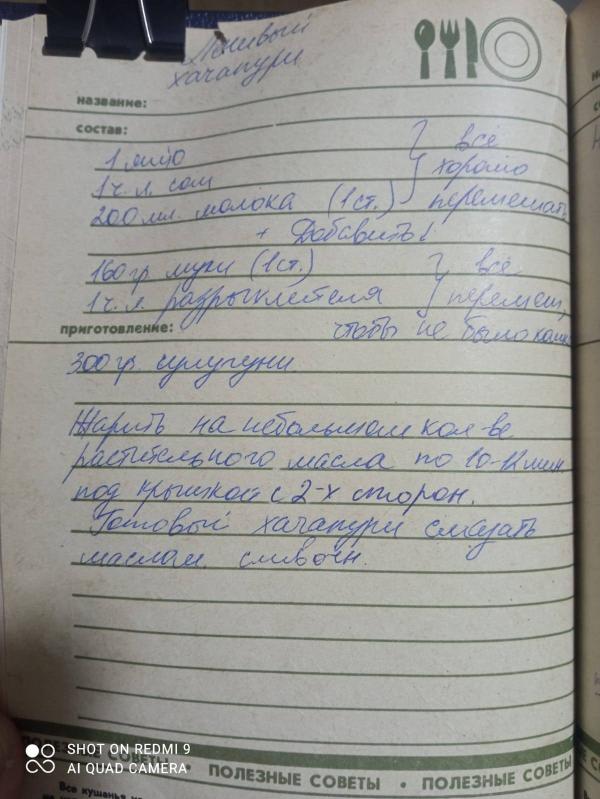 Ленивый
хачапури
название:
состав:
1 яйцо
1 ч.л. сол
200 мл. молока (1ст.)
} всё
хорошо
перемешать
+ Добавить!
160 гр муки (1ст.)
1 ч.л. разрыхлителя
} всё
перемеш,
приготовление:
чтобы не было
300 гр. сулугуни
Жарить на небольшом кол-ве
растительного масла по 10-12 мин.
под крышкой с 2-х сторон.
Готовый хачапури смазать
маслом сливочн.
SHOT ON REDMI 9
AI QUAD CAMERA
ПОЛЕЗНЫЕ СОВЕТЫ • ПОЛЕЗНЫЕ СОВЕТЫ • ПОЛЕЗНЫЕ СО
Все кушанья